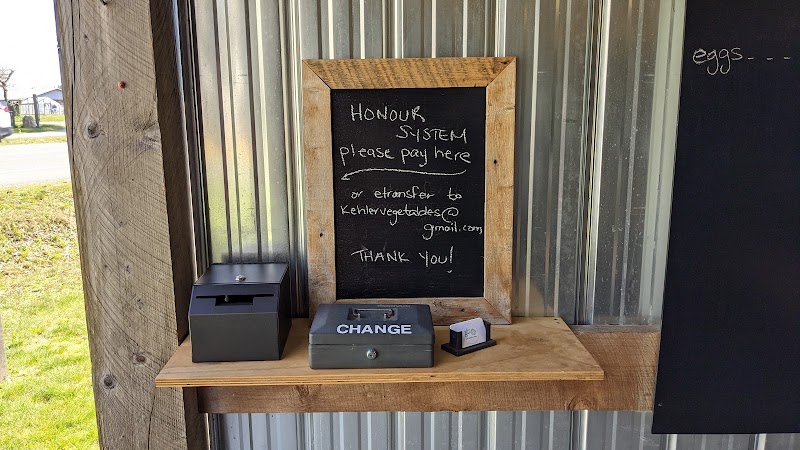 HONOUR
SYSTEM
please pay here
or etransfer to
Kehlervegetables@
gmail.com
THANK you!
CHANGE
eggs----